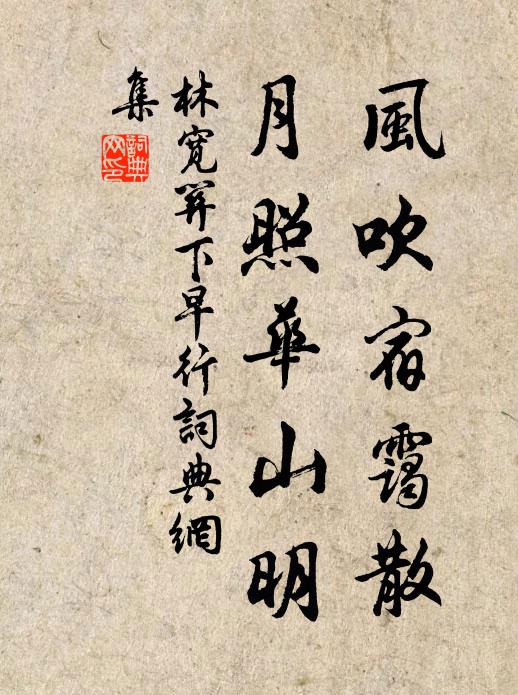 風吹宿靄散
月照華山明
林寬關下早行詞典網
集
詞典
网印